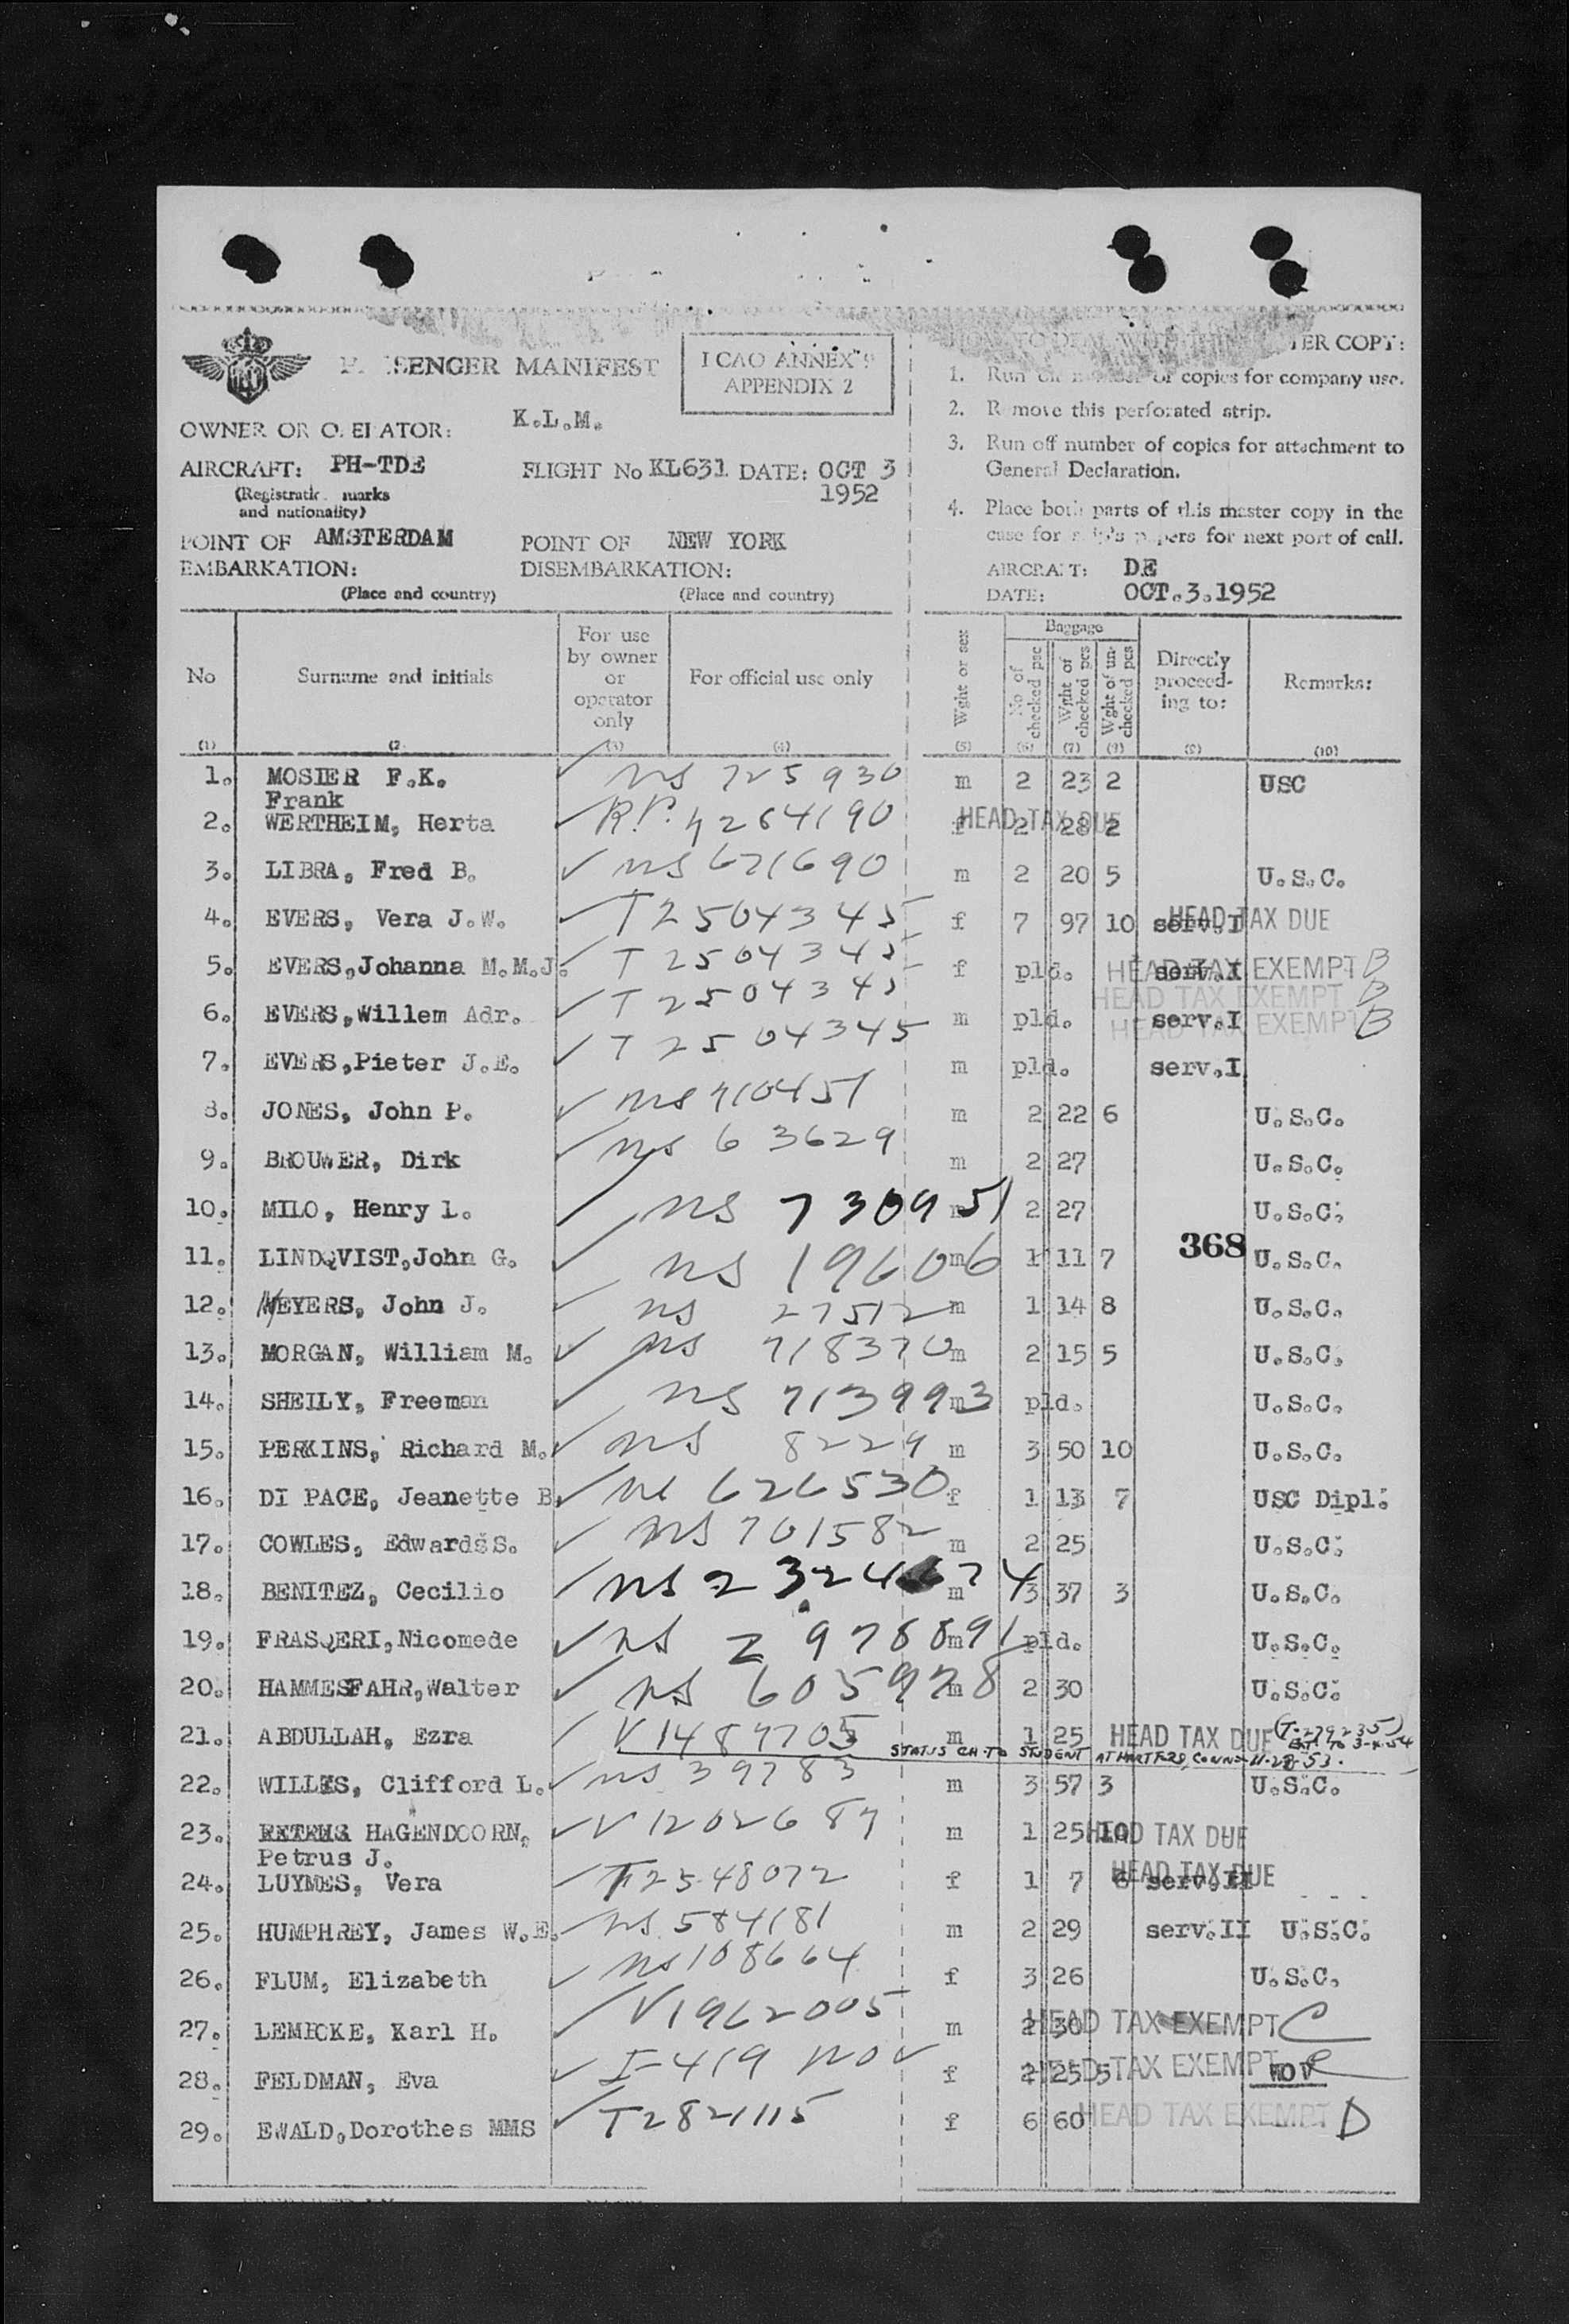 PASSENGER MANIFEST
I CAO ANNEX 9
APPENDIX 2
OWNER OR OPERATOR: K.L.M.
AIRCRAFT: PH-TDE FLIGHT No KL631 DATE: OCT 3 1952
(Registration marks
and nationality)
POINT OF EMBARKATION: AMSTERDAM POINT OF DISEMBARKATION: NEW YORK
(Place and country) (Place and country)
TER COPY:
1. Run off number of copies for company use.
2. Remove this perforated strip.
3. Run off number of copies for attachment to
General Declaration.
4. Place both parts of this master copy in the
case for ship's papers for next port of call.
AIRCRAFT: DE
DATE: OCT.3.1952
No Surname and initials For use by owner or operator only For official use only Wght or sex Baggage No of checked pcs Wght of checked pcs Wght of un-checked pcs Directly proceed-ing to: Remarks:
(1) (2 (3) (4) (5) (6) (7) (8) (9) (10)
1. MOSIER F.K. ns 725930 m 2 23 2 USC
Frank
2. WERTHEIM, Herta R.P. 7264190 f 2 28 2 HEAD TAX DUE
3. LIBRA, Fred B. ns 671690 m 2 20 5 U.S.C.
4. EVERS, Vera J.W. T2504345 f 7 97 10 serv.I HEAD TAX DUE
5. EVERS,Johanna M.M.J. T 2504345 f pld. serv.I HEAD TAX EXEMPT B
6. EVERS,Willem Adr. T 2504345 m pld. serv.I HEAD TAX EXEMPT B
HEAD TAX EXEMPT B
7. EVERS,Pieter J.E. T 2504345 m pld. serv.I
8. JONES, John P. ns 710451 m 2 22 6 U.S.C.
9. BROUWER, Dirk ns 63629 m 2 27 U.S.C.
10. MILO, Henry L. ns 730951 m 2 27 U.S.C.
368
11. LINDQVIST,John G. ns 196006 m 1 11 7 U.S.C.
12. MEYERS, John J. ns 27512 m 1 14 8 U.S.C.
13. MORGAN, William M. ns 718370 m 2 15 5 U.S.C.
14. SHEILY, Freeman ns 713993 m pld. U.S.C.
15. PERKINS, Richard M. ns 8229 m 3 50 10 U.S.C.
16. DI PACE, Jeanette B. ns 626530 f 1 13 7 USC Dipl.
17. COWLES, Edwards S. ns 701582 m 2 25 U.S.C.
18. BENITEZ, Cecilio ns m 3 37 3 U.S.C.
19. FRASQERI,Nicomede ns 2978891 m pld. U.S.C.
20. HAMMESFAHR,Walter ns 605978 m 2 30 U.S.C.
21. ABDULLAH, Ezra V1487705 m 1 25 HEAD TAX DUE (T-279235)
EXT TO 3-4-54
STATUS CH. TO STUDENT AT HARTFORD, CONN. 11-28-53.
22. WILLES, Clifford L. ns 39783 m 3 57 3 U.S.C.
23. HAGENDOORN, V1202687 m 1 25 10 HEAD TAX DUE
Petrus J.
24. LUYMES, Vera T2548072 f 1 7 6 serv.II HEAD TAX DUE
25. HUMPHREY, James W.E. ns 584181 m 2 29 serv.II U.S.C.
26. FLUM, Elizabeth ns 108664 f 3 26 U.S.C.
27. LEMECKE, Karl H. V1962005 m 2 30 HEAD TAX EXEMPT C
28. FELDMAN, Eva I-419 NOV f 2 25 5 HEAD TAX EXEMPT NOV
29. EWALD,Dorothes MMS T2821115 f 6 60 HEAD TAX EXEMPT D